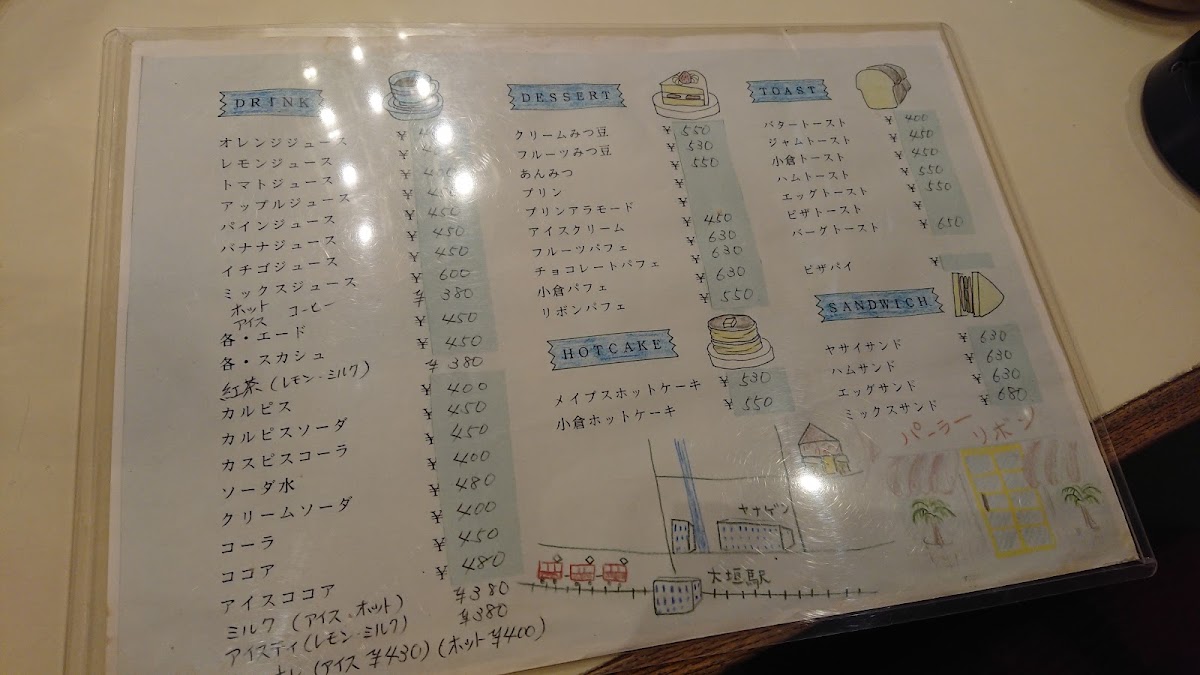 DRINK
オレンジジュース ¥
レモンジュース ¥
トマトジュース ¥
アップルジュース ¥
パインジュース ¥ 450
バナナジュース ¥ 450
イチゴジュース ¥ 450
ミックスジュース ¥ 600
ホット アイス コーヒー ¥ 380
各・エード ¥ 450
各・スカシュ ¥ 450
紅茶(レモン・ミルク) ¥ 380
カルピス ¥ 400
カルピスソーダ ¥ 450
カスピスコーラ ¥ 450
ソーダ水 ¥ 400
クリームソーダ ¥ 480
コーラ ¥ 400
ココア ¥ 450
アイスココア ¥ 480
ミルク (アイス・ホット) ¥380
アイスティ(レモン・ミルク) ¥380
(アイス ¥430)(ホット ¥400)
DESSERT
クリームみつ豆 ¥ 550
フルーツみつ豆 ¥ 530
あんみつ ¥ 550
プリン ¥
プリンアラモード ¥
アイスクリーム ¥ 450
フルーツパフェ ¥ 630
チョコレートパフェ ¥ 630
小倉パフェ ¥ 630
リボンパフェ ¥ 550
HOTCAKE
メイプスホットケーキ ¥ 530
小倉ホットケーキ ¥ 550
TOAST
バタートースト ¥ 400
ジャムトースト ¥ 450
小倉トースト ¥ 450
ハムトースト ¥ 550
エッグトースト ¥ 550
ピザトースト ¥
バーグトースト ¥ 650
ピザパイ ¥
SANDWICH
ヤサイサンド ¥ 630
ハムサンド ¥ 630
エッグサンド ¥ 630
ミックスサンド ¥ 680
パーラー リボン
ヤナゲン
大垣駅